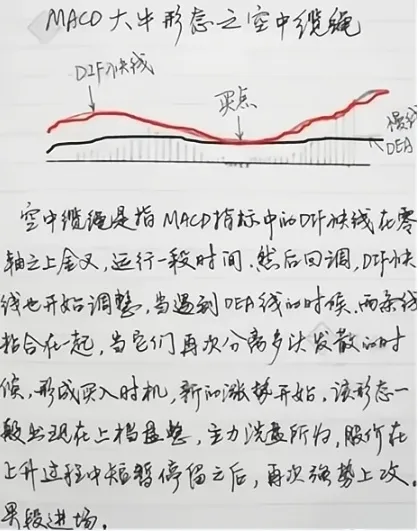 MACD大牛形态之空中缆绳
DIF快线
买点
慢线
DEA
空中缆绳是指MACD指标中的DIF快线在零
轴之上金叉,运行一段时间.然后回调,DIF快
线也开始调整,当遇到DEA线的时候.两条线
粘合在一起,当它们再次分离多头发散的时
候,形成买入时机,新的涨势开始,该形态一
般出现在上档盘整,主力洗盘所为,股价在
上升过程中短暂停留之后,再次强势上攻.
果段进场.